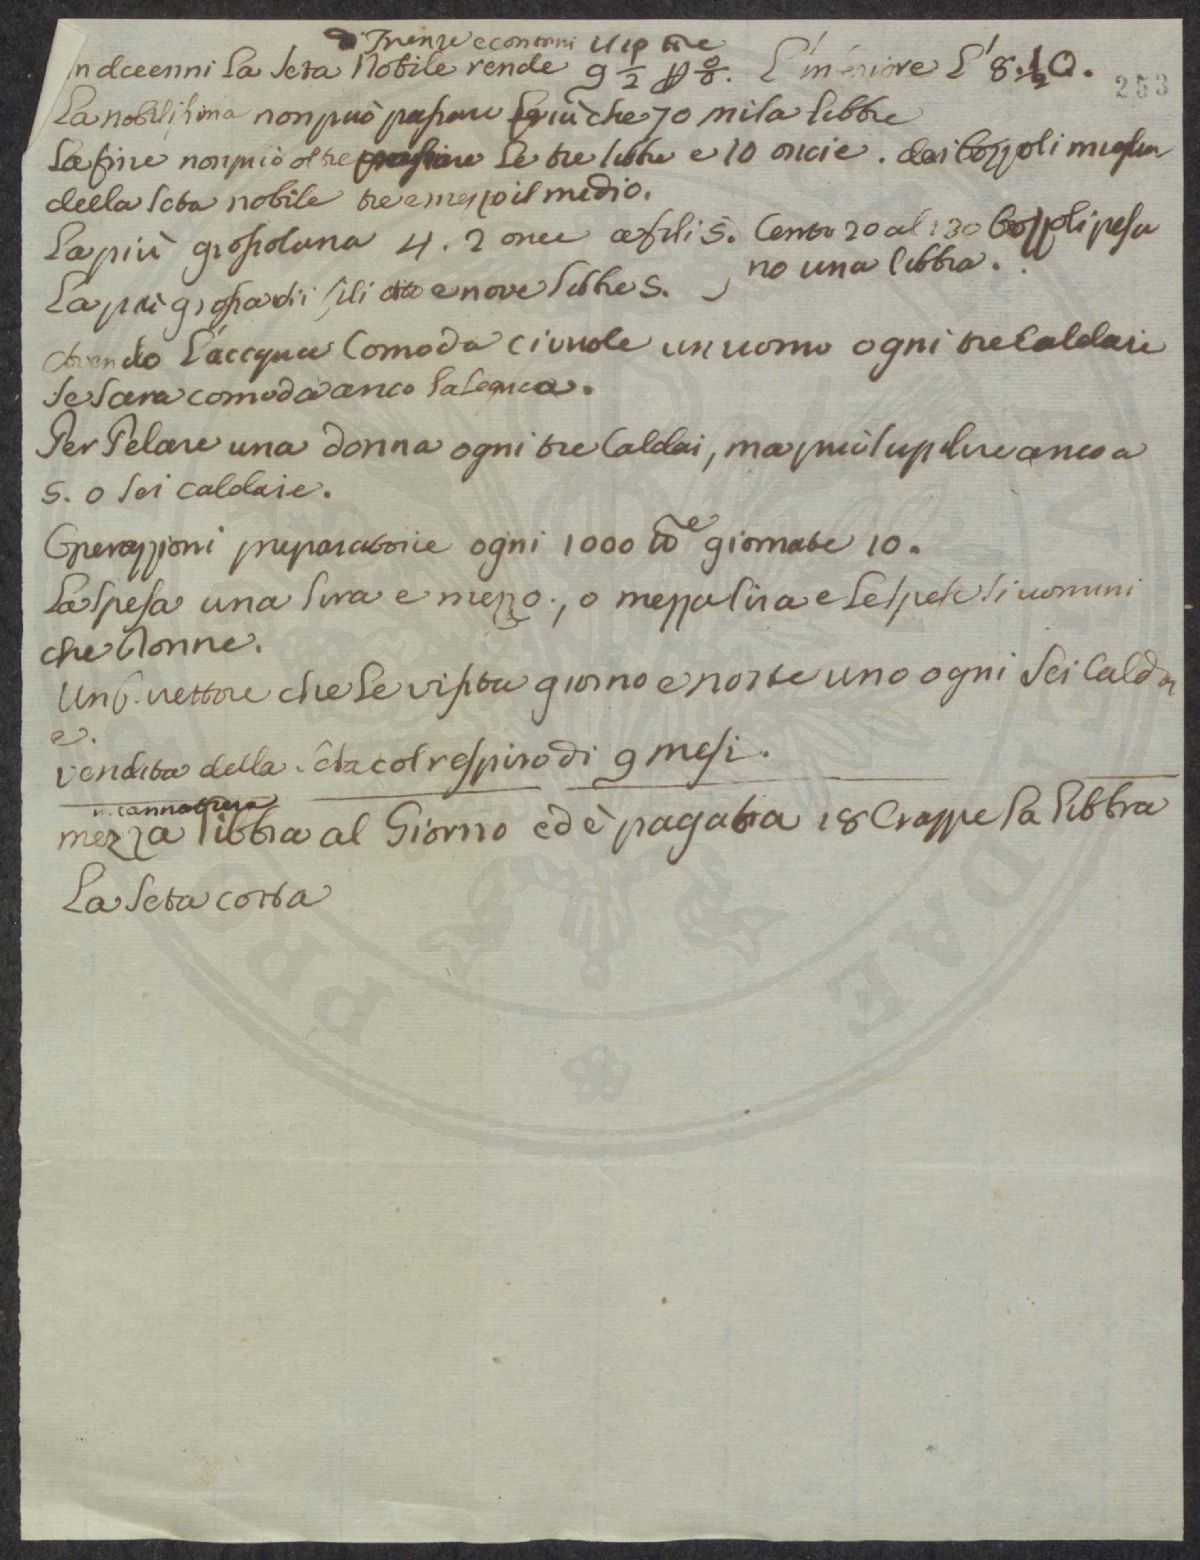 di Firenze e contorni
la Seta Nobile rende 9 1/2 p %. L'inferiore L' 8. 1/2 0.
253
La nobilissima non può passare più che 70 mila libbre
La fine non può oltre le tre libbre e 10 oncie. dei bozzoli
della Seta nobile tre e mezzo il medio.
La più grossolana 4. 2 once a fili 5. Cento 20 al 130 bozzoli pesa
no una libbra.
La più grossa di fili e nove libbre 5.
avendo l'acqua comoda ci vuole un uomo ogni tre caldaie
se sara comoda anco la Legnia.
Per Pelare una donna ogni tre Caldai, ma può suplire anco a
5. o sei caldaie.
Operazzioni preparatorie ogni 1000 giornate 10.
La spesa una lira e mezzo., o mezza lira e le spese si uomini
che donne.
Un che le visita giorno e notte uno ogni sei Calda
e.
vendita della Seta col respiro di 9 mesi.
incannatura
mezza libbra al Giorno ed è pagata 18 Crazze la libbra
La Seta corta